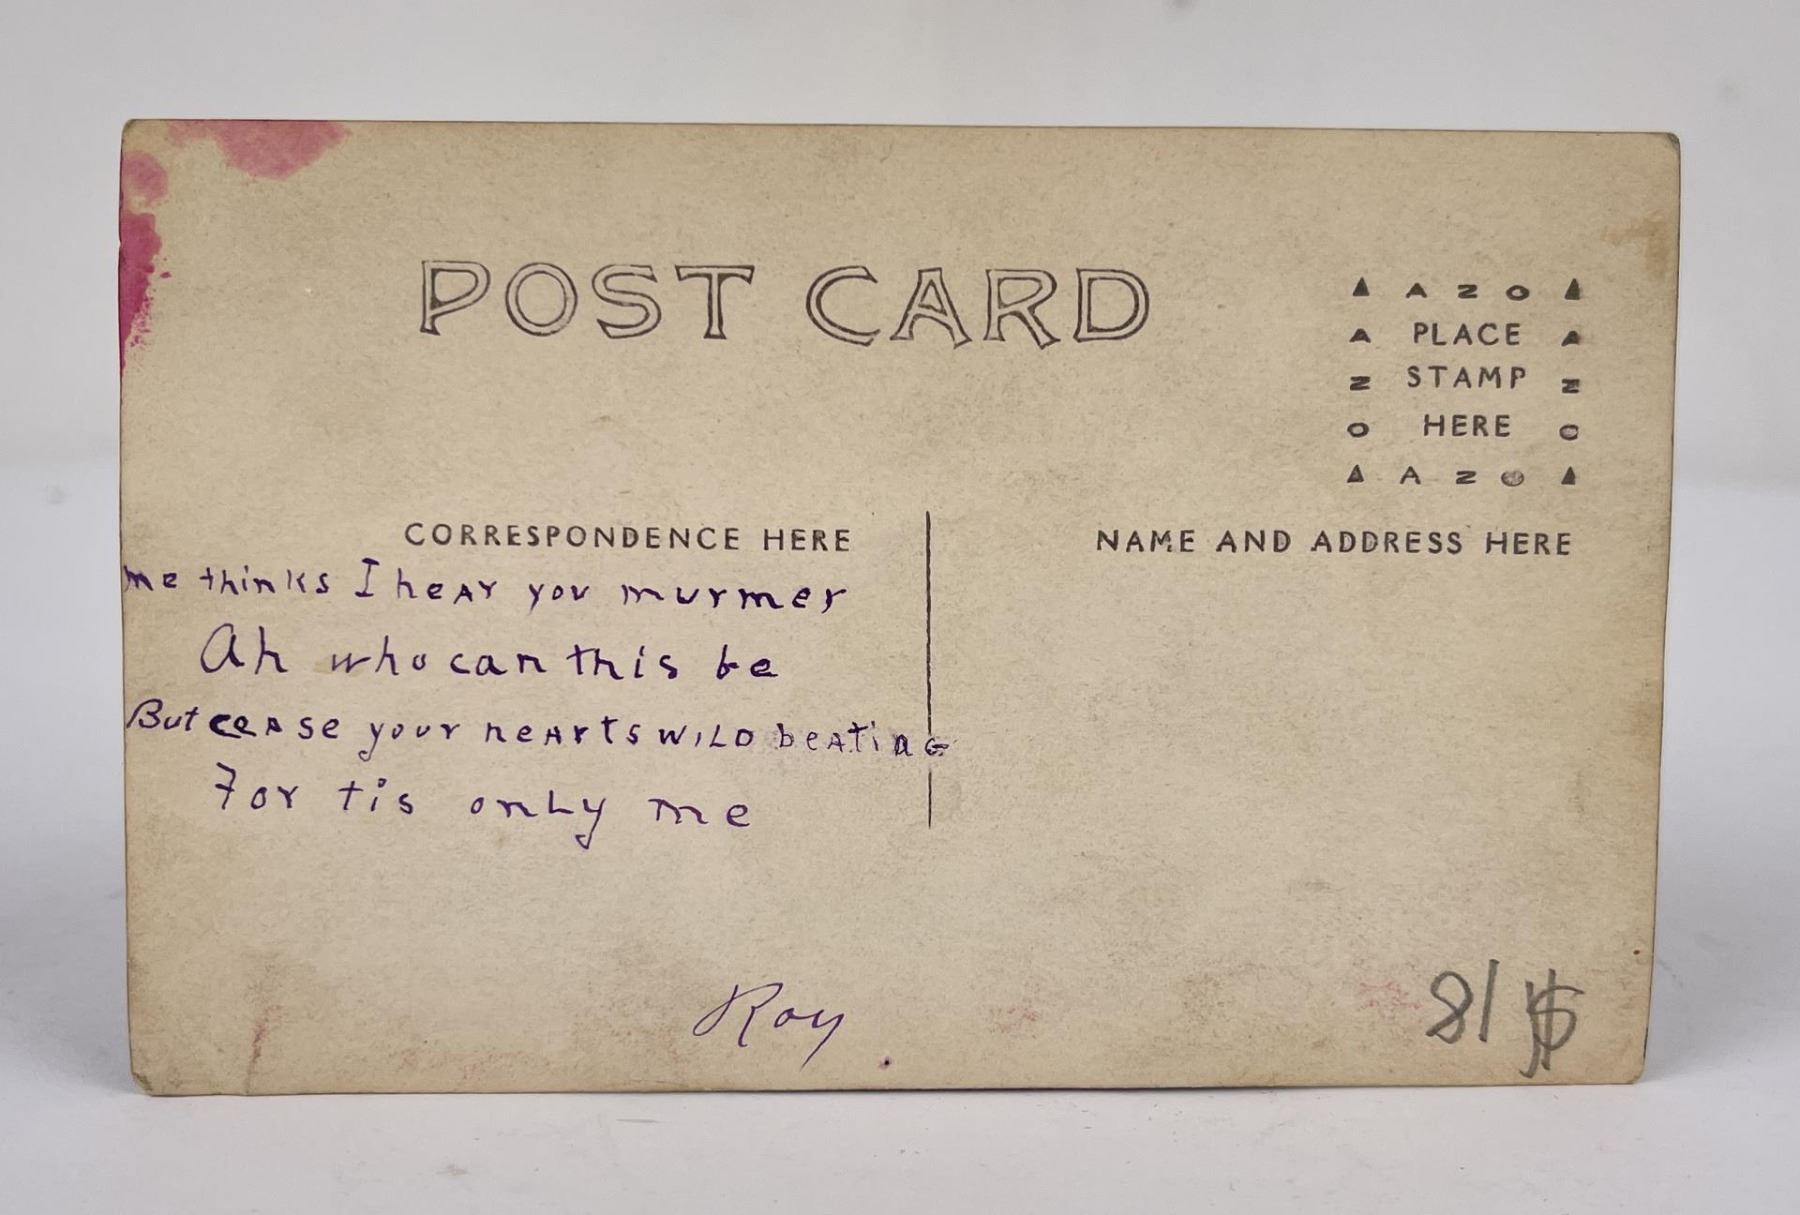 POST CARD
▲ A Z O ▲
A PLACE A
Z STAMP Z
O HERE O
▲ A Z O ▲
CORRESPONDENCE HERE
NAME AND ADDRESS HERE
me thinks I hear you murmer
Ah who can this be
But cease your hearts wild beating
For tis only me
Roy